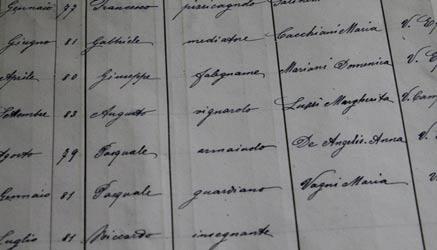 Gennaio 77 Francesco pizzicagnolo
Giugno 81 Gabriele mediatore Cacchiani Maria V.
Aprile 80 Giuseppe falegname Mariani Domenica V.
Settembre 83 Augusto vignarolo Luzzi Margherita
Agosto 79 Pasquale De Angelis Anna V.
Gennaio 81 Pasquale guardiano Vagni Maria
Luglio 81 Riccardo insegnante